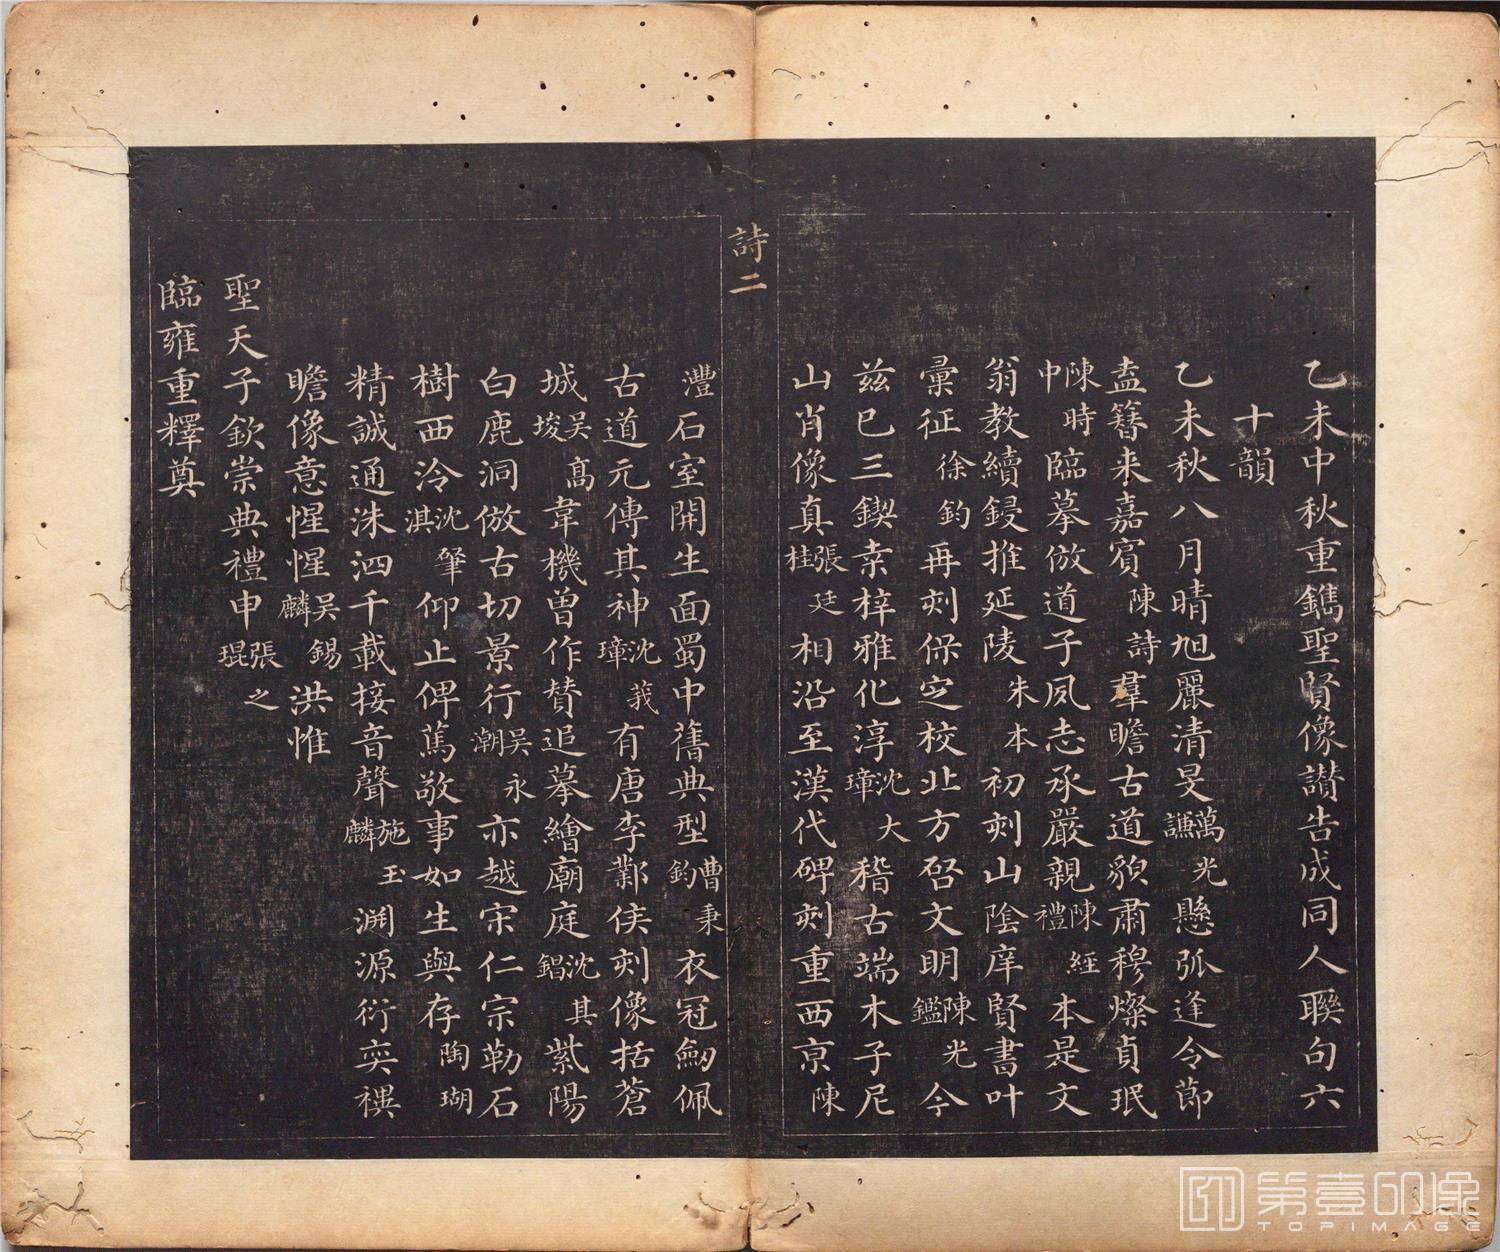 乙未中秋重鐫聖賢像讃告成同人聯句六
十韻
乙未秋八月晴旭麗清旻萬光謙懸弧逢令節
盍簪来嘉賓陳詩羣瞻古道貌肅穆燦貞珉
陳時中臨摹倣道子夙志承嚴親陳經禮本是文
翁教續鋟推延陵朱本初刻山陰庠賢書叶
彙征徐鈞再刻保定校北方啓文明陳光鑑今
兹已三鍥桒梓雅化淳沈大璋稽古端木子尼
山肖像真張廷桂相沿至漢代碑刻重西京陳
詩二
灃石室開生面蜀中舊典型曹秉鈞衣冠劒佩
古道元傳其神沈莪璋有唐李鄴侯刻像括蒼
城吴高埈韋機曽作賛追摹繪廟庭沈其錩紫陽
白鹿洞倣古切景行吴永潮亦越宋仁宗勒石
樹西泠沈肇淇仰止俾篤敬事如生與存陶瑚
精誠通洙泗千載接音聲施玉麟渊源衍奕禩
瞻像意惺惺吴錫麟洪惟
聖天子欽崇典禮申張之琨
臨雍重釋奠
第壹印像
TOPIMAGE